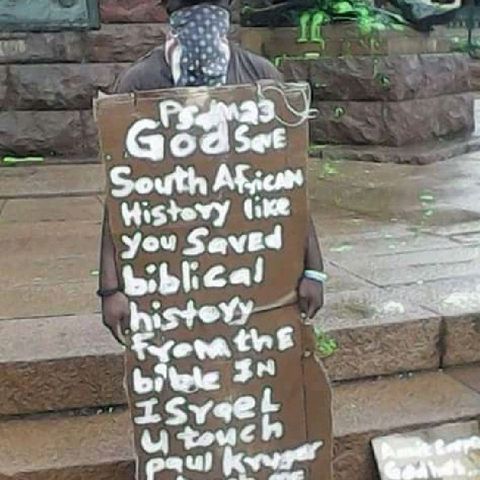 Psalm 23
God Save
South African
History like
you Saved
biblical
history
From the
bible IN
ISrael
U touch
paul Kruger
God